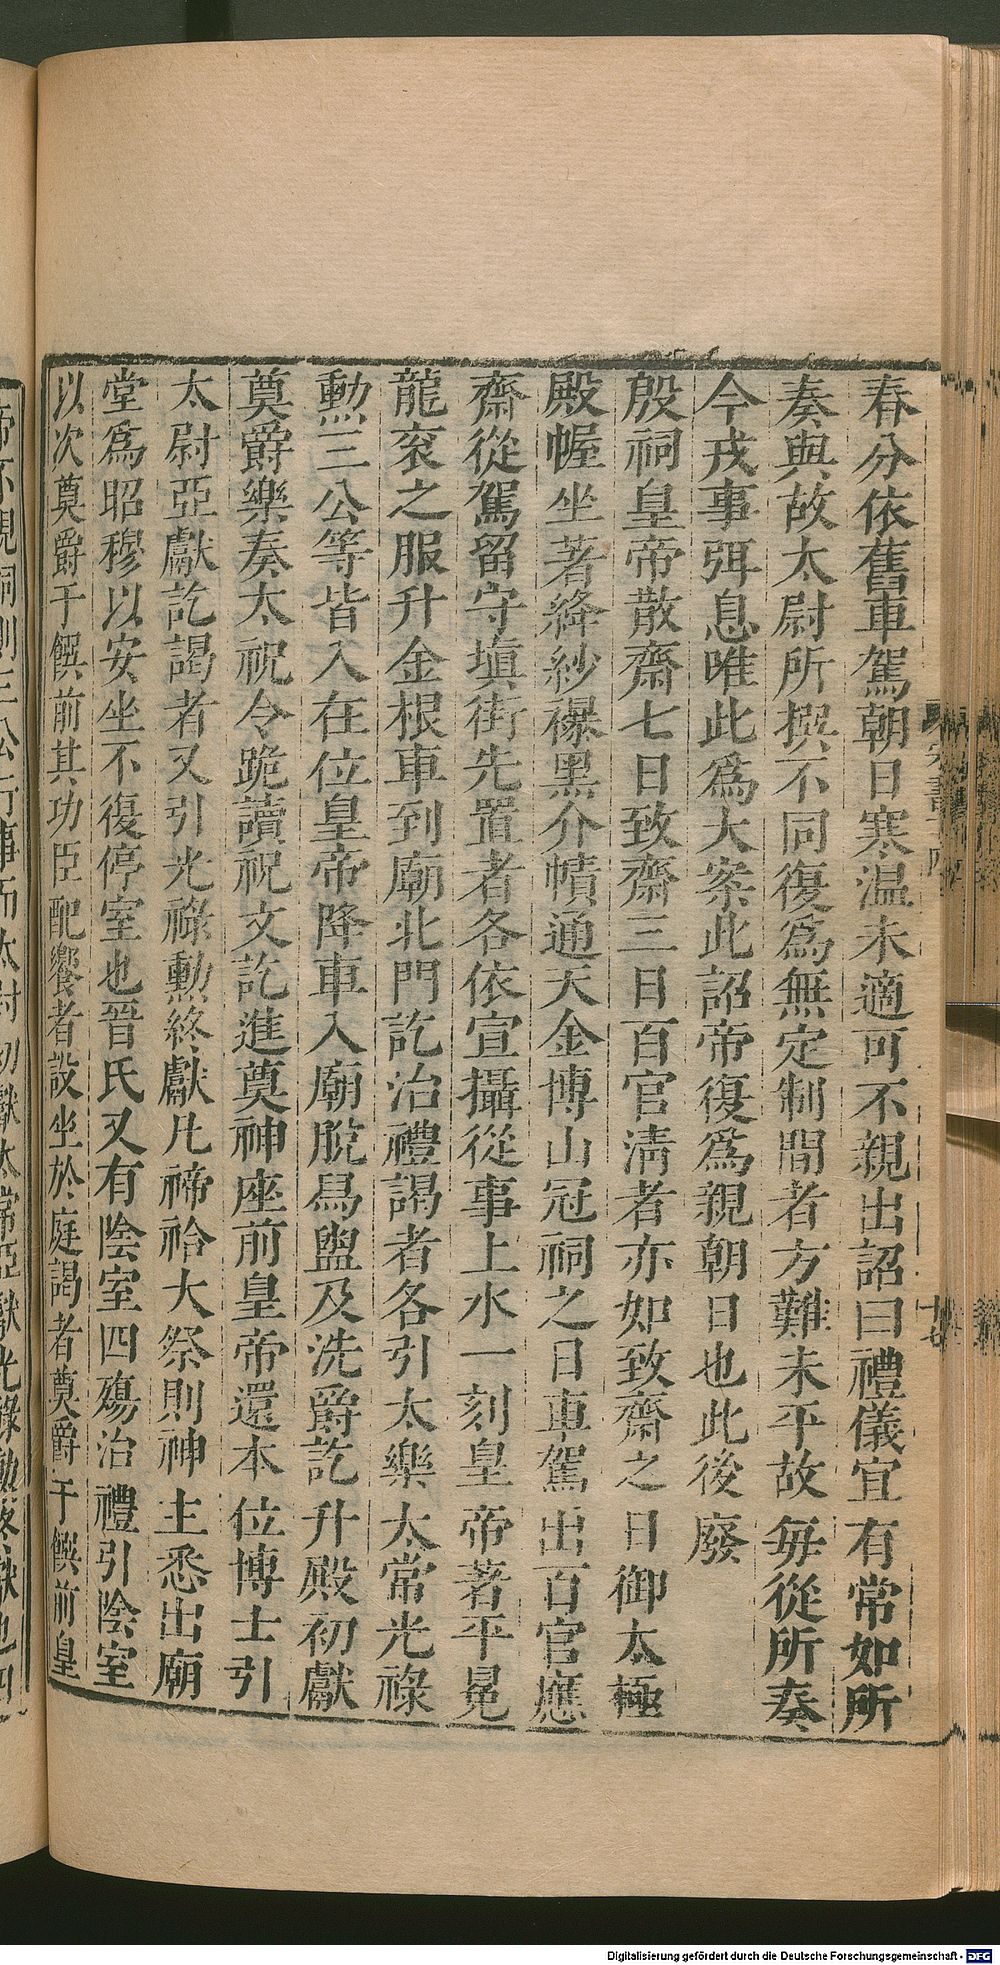 春分依舊車駕朝日寒温未適可不親出詔曰禮儀宜有常如所
奏與故太尉所撰不同復爲無定制間者方難未平故每從所奏
今戎事弭息唯此爲大案此詔帝復爲親朝日也此後廢
殷祠皇帝散齋七日致齋三日百官清者亦如致齋之日御太極
殿幄坐著絳紗襮黑介幘通天金博山冠祠之日車駕出百官應
齋從駕留守塡街先置者各依宣攝從事上水一刻皇帝著平冕
龍衮之服升金根車到廟北門訖治禮謁者各引太樂太常光祿
勲三公等皆入在位皇帝降車入廟脫舄盥及洗爵訖升殿初獻
奠爵樂奏太祝令跪讀祝文訖進奠神座前皇帝還本位博士引
太尉亞獻訖謁者又引光祿勲終獻凡禘祫大祭則神主悉出廟
堂爲昭穆以安坐不復停室也晉氏又有陰室四殤治禮引陰室
以次奠爵于饌前其功臣配饗者設坐於庭謁者奠爵于饌前皇
帝不親祠則三公行事而太尉初獻太常亞獻光祿勲終獻也四
宋書十四
十七
Digitalisierung gefördert durch die Deutsche Forschungsgemeinschaft - DFG